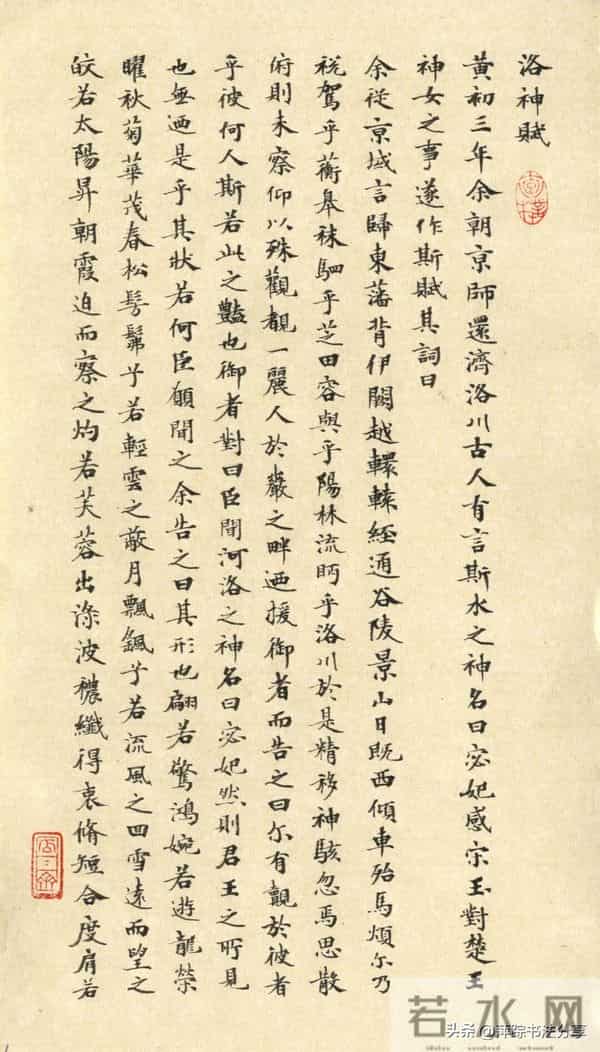 洛神賦
黃初三年余朝京師還濟洛川古人有言斯水之神名曰宓妃感宋玉對楚王
神女之事遂作斯賦其詞曰
余從京域言歸東藩背伊闕越轘轅經通谷陵景山日既西傾車殆馬煩尔乃
稅駕乎蘅皋秣駟乎芝田容與乎陽林流眄乎洛川於是精移神駭忽焉思散
俯則未察仰以殊觀覩一麗人於巖之畔迺援御者而告之曰尔有覿於彼者
乎彼何人斯若此之豔也御者對曰臣聞河洛之神名曰宓妃然則君王之所見
也無迺是乎其狀若何臣願聞之余告之曰其形也翩若驚鴻婉若遊龍榮
曜秋菊華茂春松髣髴兮若輕雲之蔽月飄颻兮若流風之回雪遠而望之
皎若太陽昇朝霞迫而察之灼若芙蓉出淥波穠纖得衷脩短合度肩若
若水网
头条 @萍踪书法分享